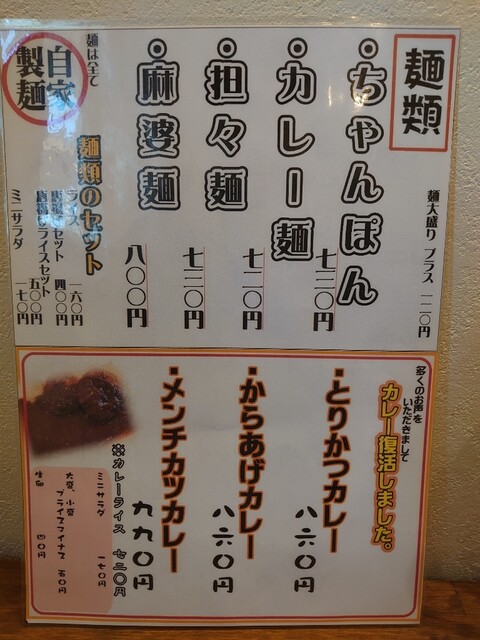 麺類
麺大盛り プラス 一二〇円
・ちゃんぽん 七三〇円
・カレー麺 七二〇円
・担々麺 七二〇円
・麻婆麺 八〇〇円
麺は全て
自家製麺
麺類のセット
ライス 一六〇円
セット 四〇〇円
ライスセット 五〇〇円
ミニサラダ 一七〇円
多くのお声を
いただきまして
カレー復活しました。
・とりかつカレー 八六〇円
・からあげカレー 八六〇円
・メンチカツカレー 九九〇円
※カレーライス 七二〇円
ミニサラダ 一七〇円
大盛、小盛
プライスマイナス 五〇円
生卵 四〇円